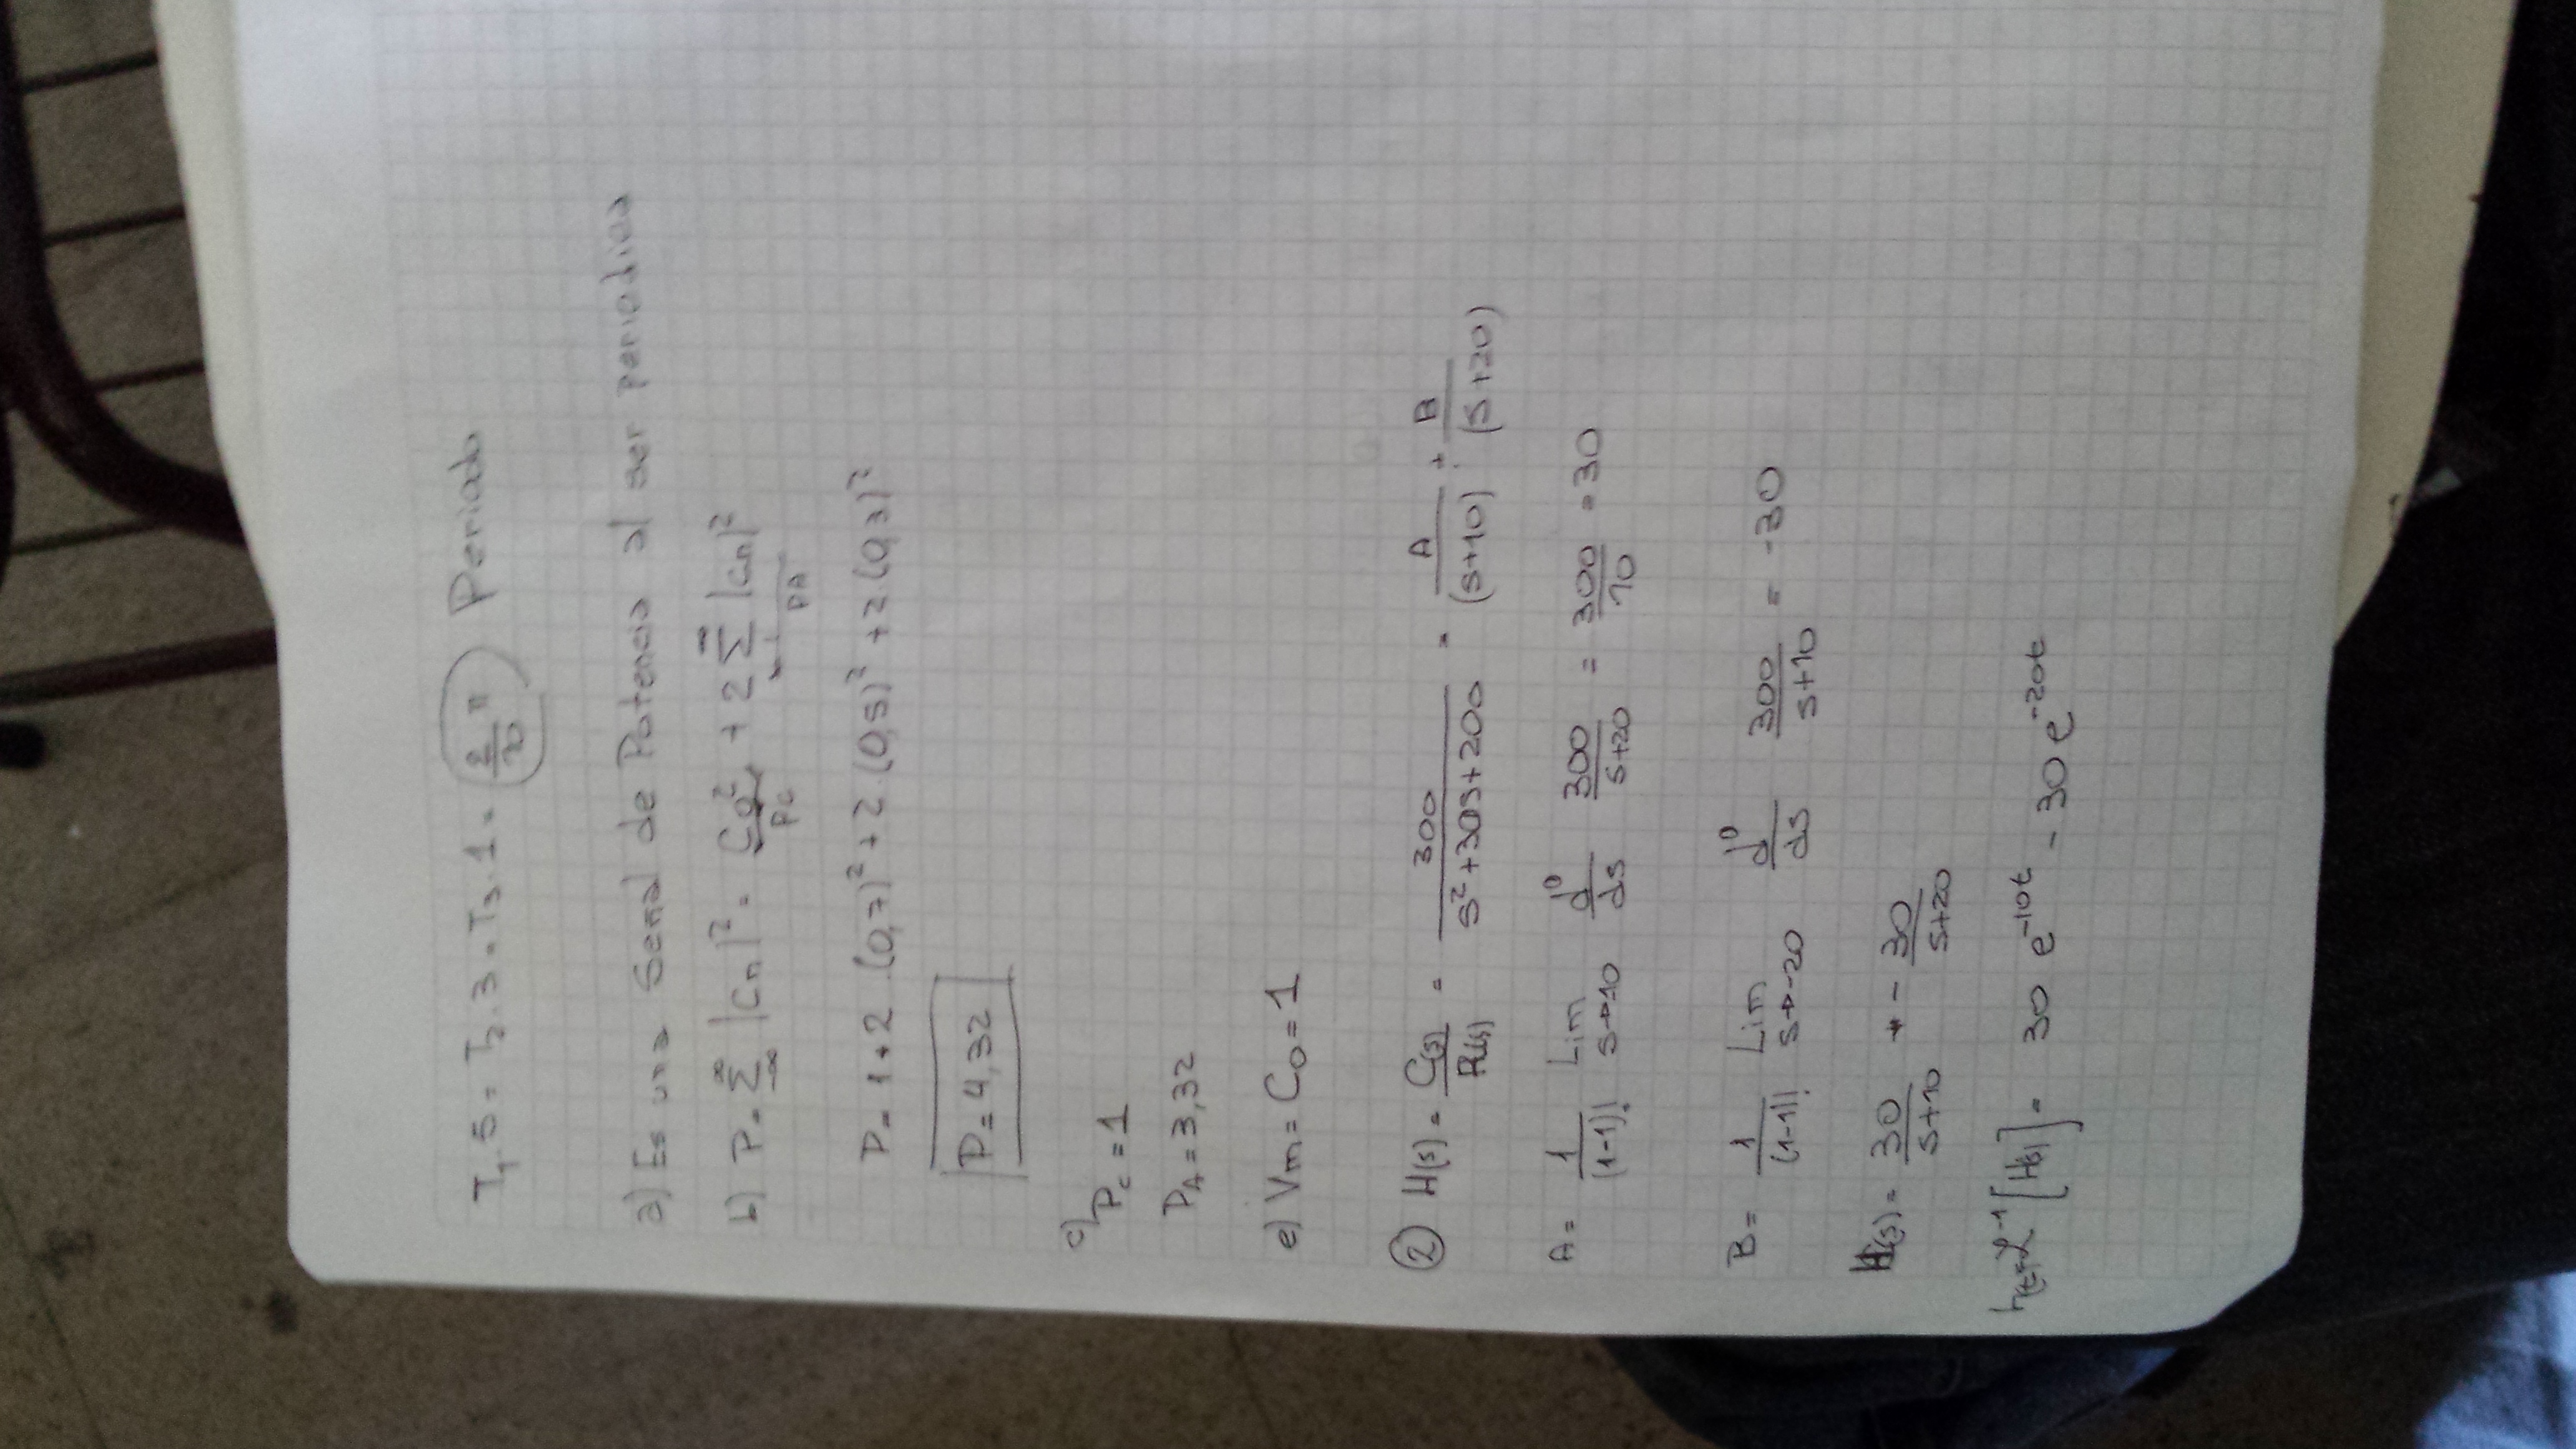 T₁.5 = T₂.3 = T₃.1 = 2/10 π Periodo
a) Es una Señal de Potencia al ser periodica
b) P = Σ_{-∞}^{∞} |Cn|² = C₀² + 2 Σ_{1}^{∞} |Cn|²
Pc PA
P = 1 + 2 . (0,7)² + 2 . (0,5)² + 2 . (0,3)²
P = 4,32
c)
Pc = 1
PA = 3,32
e) Vm = C₀ = 1
② H(s) = C(s)/R(s) = 300/(s²+30s+200) = A/(s+10) + B/(s+20)
A = 1/(1-1)! Lim s→10 d⁰/ds 300/(s+20) = 300/10 = 30
B = 1/(1-1)! Lim s→-20 d⁰/ds 300/(s+10) = -30
H(s) = 30/(s+10) + - 30/(s+20)
h(t) = ℒ⁻¹ [H(s)] = 30 e^{-10t} - 30 e^{-20t}